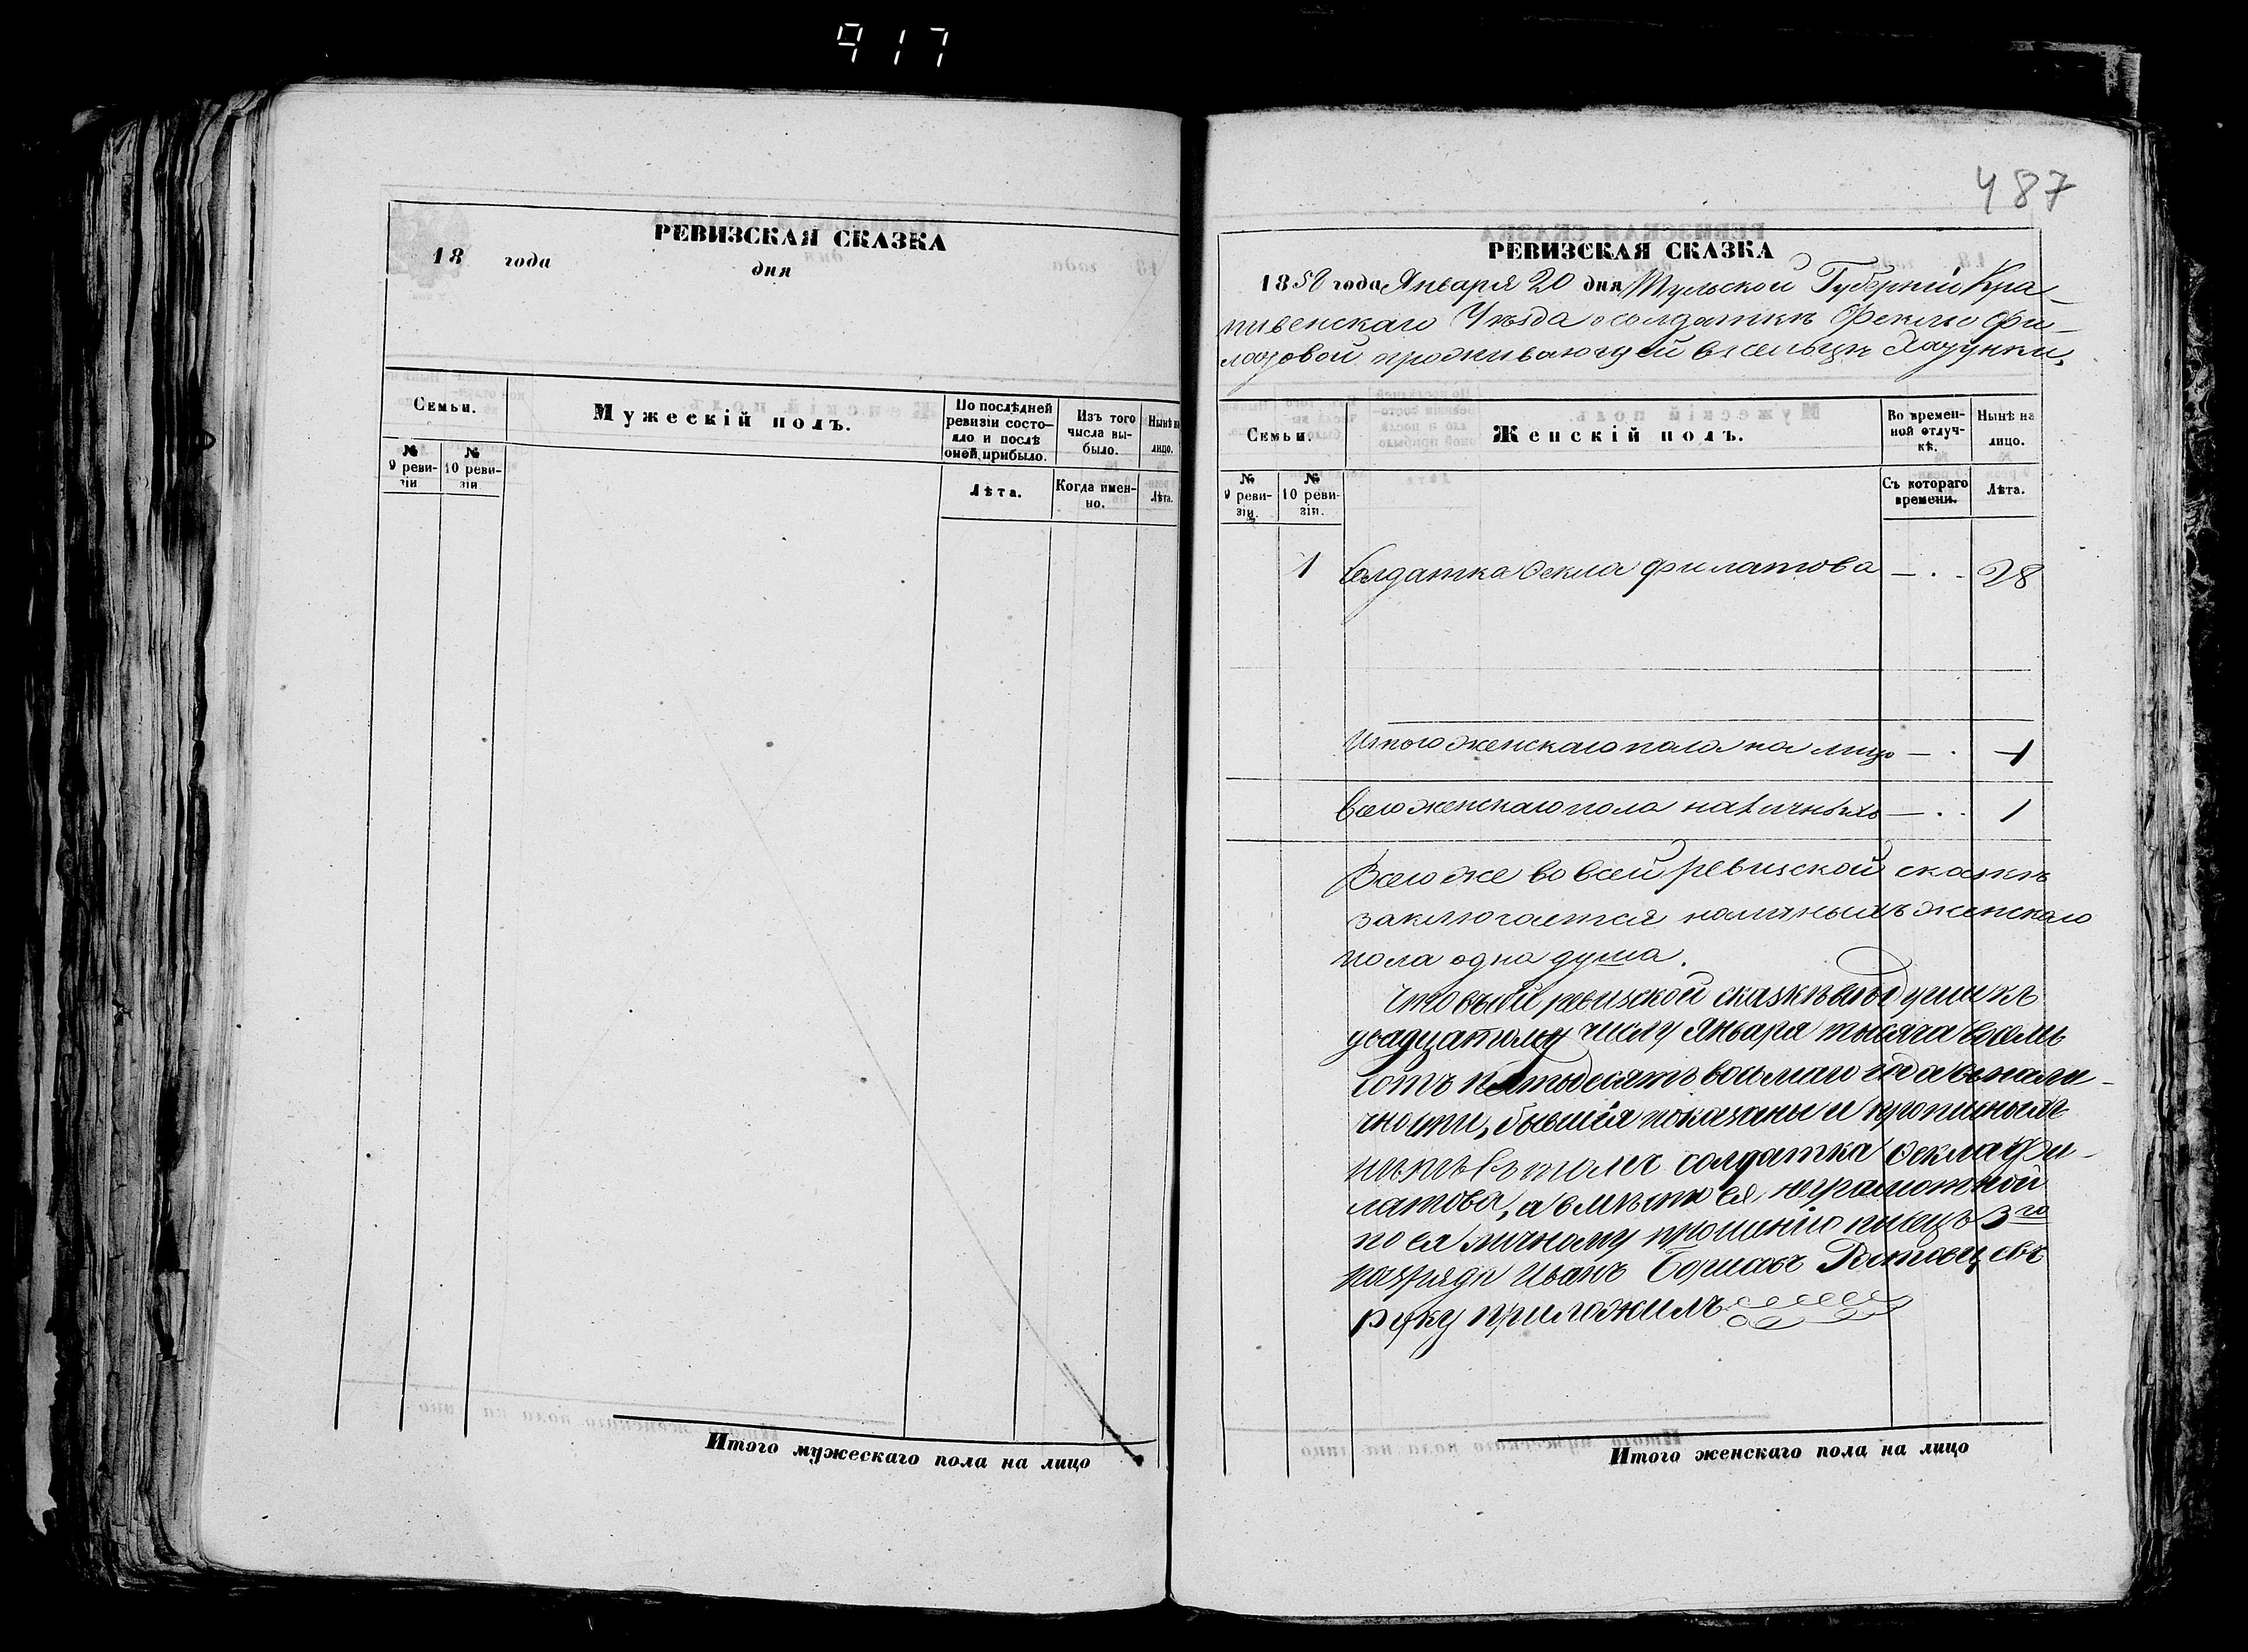 917
РЕВИЗСКАЯ СКАЗКА
18 года дня
Семьи.
Мужескій полъ.
По послѣдней ревизіи состояло и послѣ оной прибыло.
Изъ того числа выбыло.
Нынѣ на лицо.
№ 9 ревизіи
№ 10 ревизіи
Лѣта.
Когда именно.
Лѣта.
Итого мужескаго пола на лицо
487
РЕВИЗСКАЯ СКАЗКА
1858 года Января 20 дня Тульской Губерніи Кра-
пивенскаго Уѣзда о солдаткѣ Феклѣ Фи-
латовой проживающей в сельцѣ
Семьи.
Женскій полъ.
Во временной отлучкѣ.
Нынѣ на лицо.
№ 9 ревизіи.
№ 10 ревизіи.
Съ котораго времени.
Лѣта.
1 Солдатка Фекла Филатова — . - 28
Итого женскаго пола на лицо — . 1
Всего женскаго пола наличныхъ — . . 1
Всего же во всей ревизской сказкѣ
заключается наличныхъ женскаго
пола одна душа.
Что въ сей ревизской сказкѣ все души къ
двадцатому числу Января тысяча восемь
сотъ пятьдесятъ восьмаго года въ нали-
чности, бывшія показаны и прописныхъ
нѣтъ въ томъ солдатка Фекла Фи-
латова, а вмѣсто ея неграмотной
по ея личному прошенію писецъ 3го
разряда Иванъ Борисовъ Ростовцевъ
руку приложилъ
Итого женскаго пола на лицо